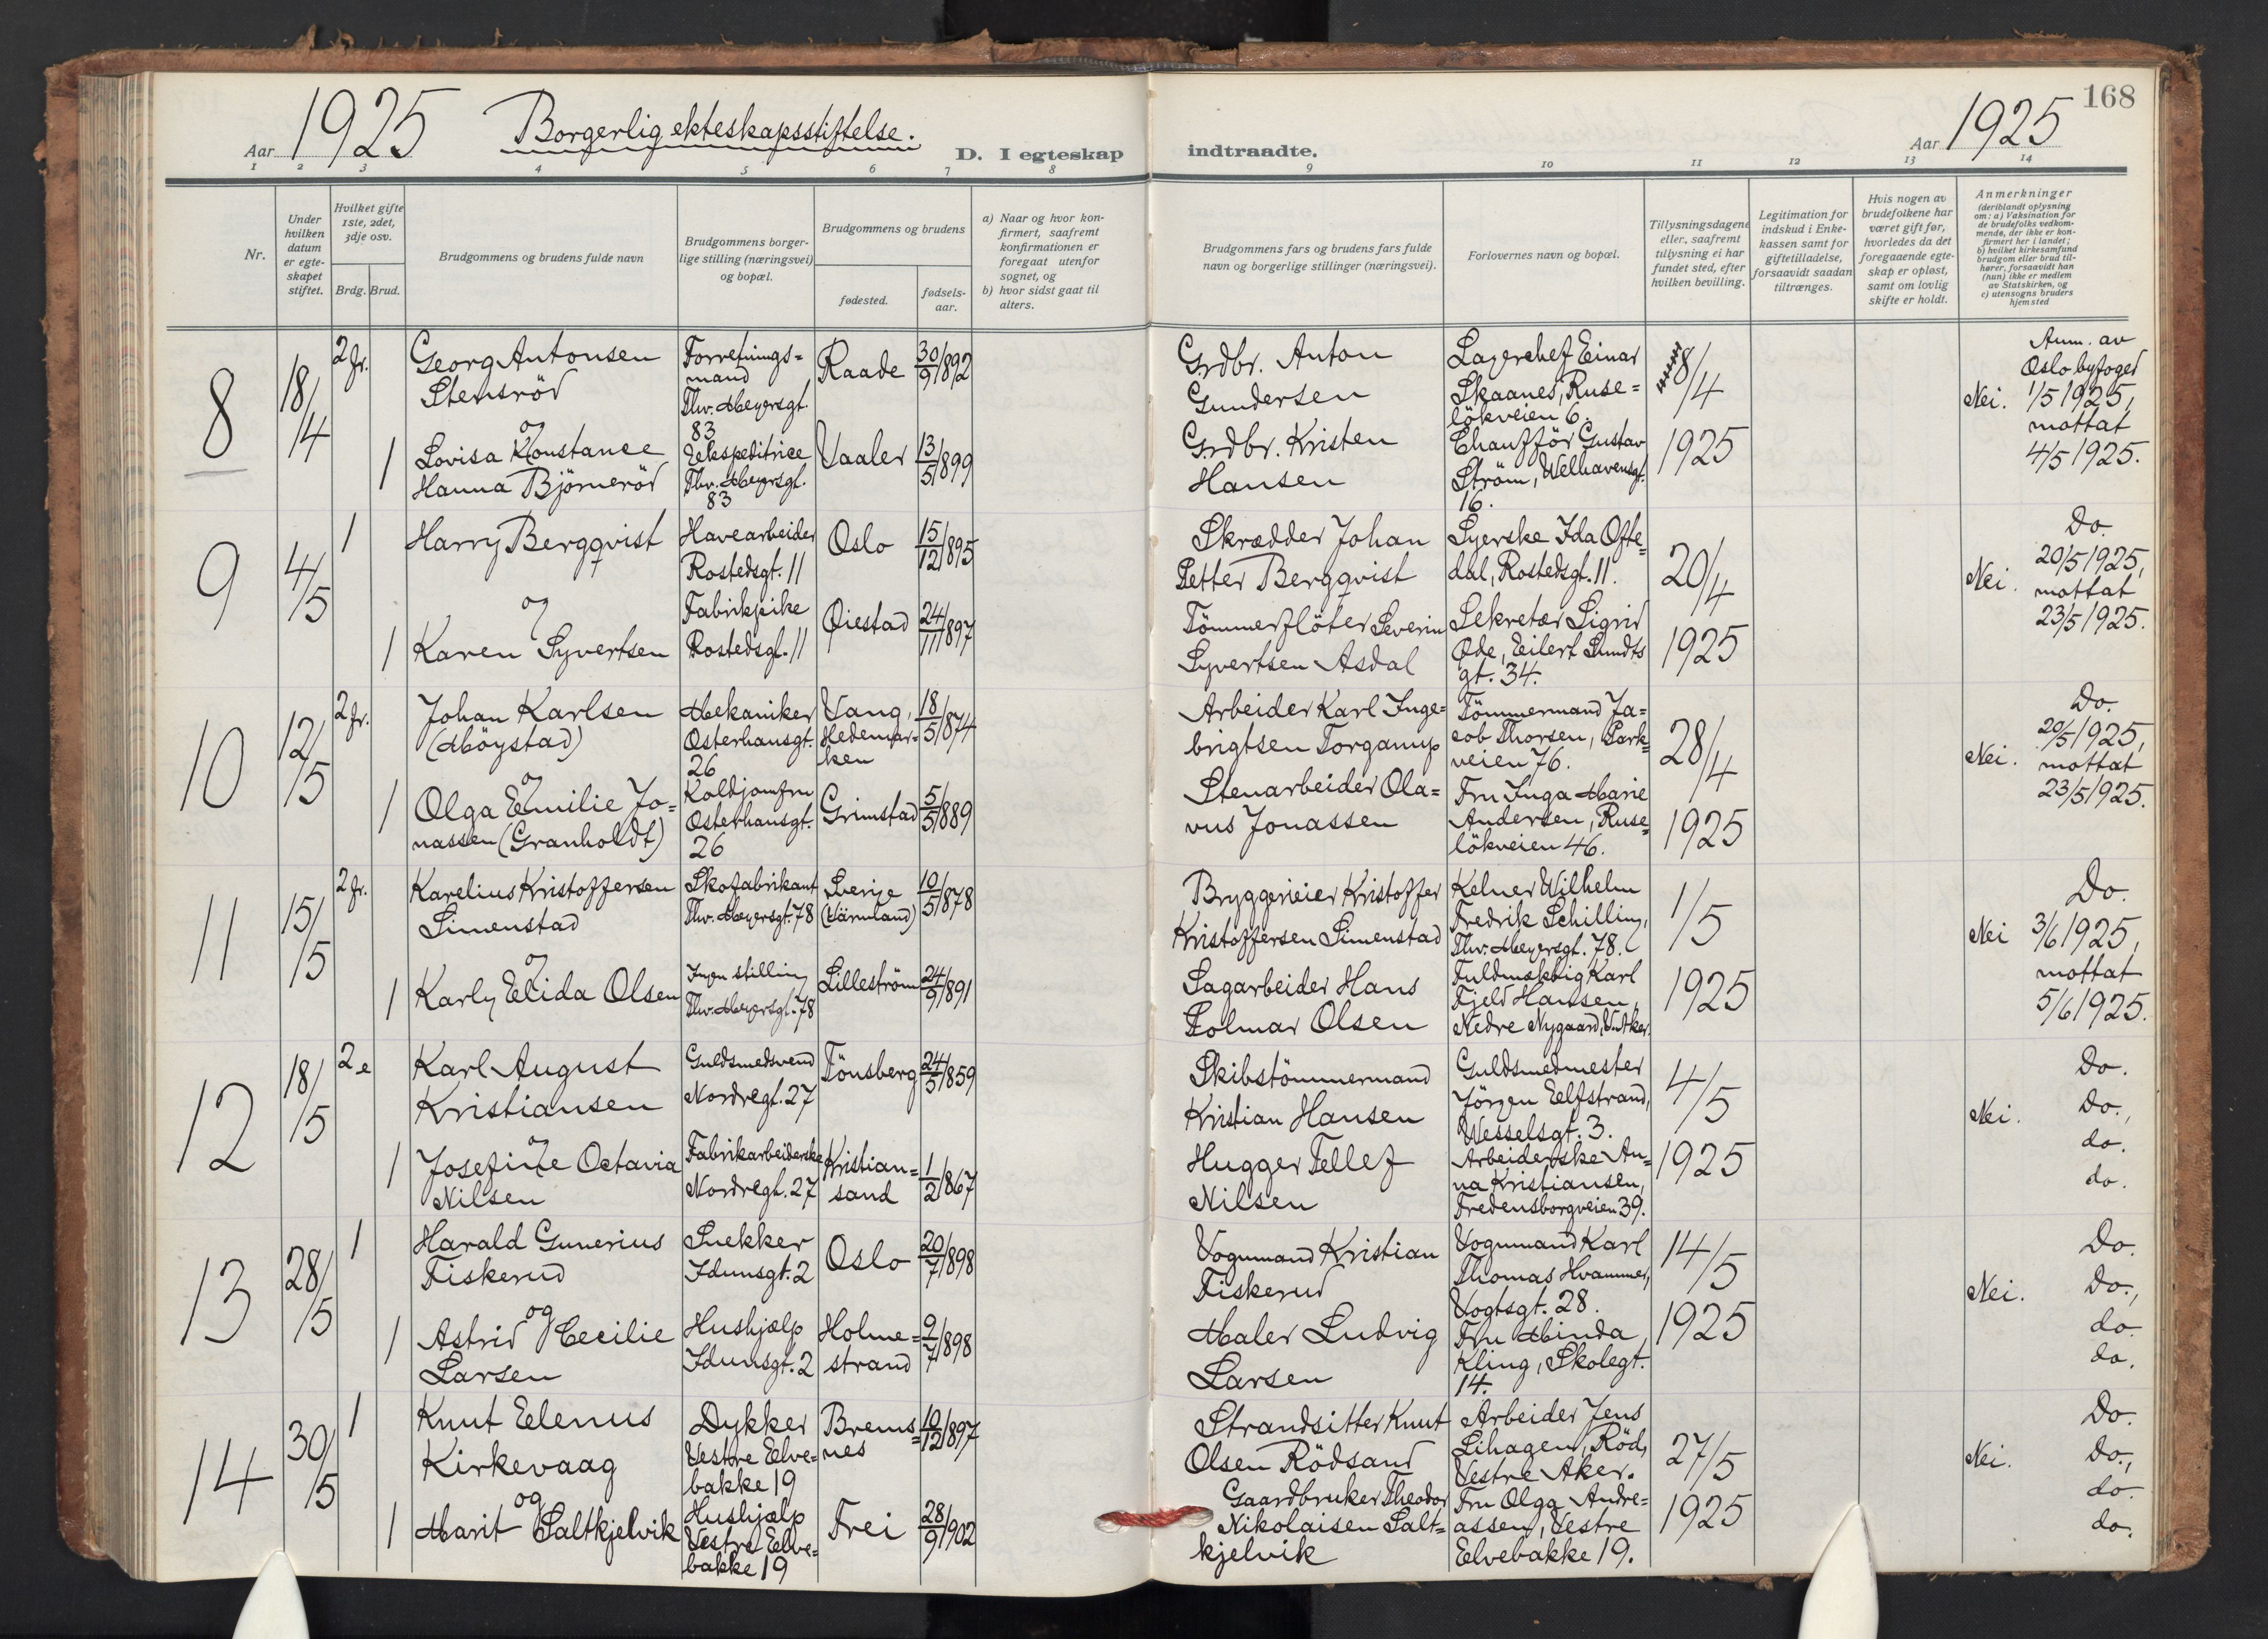 168
Aar 1925 Borgerlig ekteskapsstiftelse. D. I egteskap indtraadte. Aar 1925
1 2 3 4 5 6 7 8 9 10 11 12 13 14
Nr.
Under hvilken datum er egteskapet stiftet.
Hvilket gifte 1ste, 2det, 3dje osv.
Brdg. Brud.
Brudgommens og brudens fulde navn
Brudgommens borger-
lige stilling (næringsvei)
og bopæl.
Brudgommens og brudens
fødested.
fødsels-
aar.
a) Naar og hvor kon-
firmert, saafremt
konfirmationen er
foregaat utenfor
sognet, og
b) hvor sidst gaat til
alters.
Brudgommens fars og brudens fars fulde
navn og borgerlige stillinger (næringsvei).
Forlovernes navn og bopæl.
Tillysningsdagene
eller, saafremt
tillysning ei har
fundet sted, efter
hvilken bevilling.
Legitimation for
indskud i Enke-
kassen samt for
giftetilladelse,
forsaavidt saadan
tiltrænges.
Hvis nogen av
brudefolkene har
været gift før,
hvorledes da det
foregaaende egte-
skap er opløst,
samt om lovlig
skifte er holdt.
Anmerkninger
(deriblandt oplysning
om: a) Vaksination for
de brudefolks vedkom-
mende, der ikke er kon-
firmert her i landet;
b) hvilket kirkesamfund
brudgom eller brud til-
hører, forsaavidt han
(hun) ikke er medlem
av Statskirken, og
c) utensogns bruders
hjemsted
8
18/4
2 fr.
Georg Antonsen
Stensröd
Forretnings=
mand
Thv. Meyersgt.
83
Raade
30/9 1892
Grdbr. Anton
Gundersen
Lagerchef Einar
Skaanes, Ruse=
lökveien 6.
8/4
1925
Nei.
Anm. av
Oslo byfoged
1/5 1925,
mottat
4/5 1925.
og
1
Lovisa Konstance
Hanna Björneröd
Ekspeditrice
Thv. Meyersgt.
83
Vaaler
13/5 1899
Grdbr. Kristen
Hansen
Chaufför Gustav
Ström, Welhavensgt.
16.
9
4/5
1
Harry Bergqvist
Havearbeider
Rostedsgt. 11
Oslo
15/12 1895
Skrædder Johan
Petter Bergqvist
Syerske Ida Ofte=
dal, Rostedsgt. 11.
20/4
1925
Nei.
Do.
20/5 1925,
mottat
23/5 1925.
og
1
Karen Syvertsen
Fabrikpike
Rostedsgt. 11
Øiestad
24/11 1897
Tömmerflöter Severin
Syvertsen Asdal
Sekretær Sigrid
Ode, Eilert Sundts
gt. 34.
10
12/5
2 fr.
Johan Karlsen
(Möystad)
Mekaniker
Osterhausgt.
26
Vang,
Hedemar=
ken
18/5 1874
Arbeider Karl Inge=
brigtsen Torgamp
Tömmermand Ja=
cob Thorsen, Park=
veien 76.
28/4
1925
Nei.
Do.
20/5 1925,
mottat
23/5 1925.
og
1
Olga Emilie Jo=
nassen (Granholdt)
Koldjomfru
Osterhausgt.
26
Grimstad
5/5 1889
Stenarbeider Ola=
vus Jonassen
Fru Inga Marie
Andersen, Ruse=
lökveien 46.
11
15/5
2 fr.
Karelius Kristoffersen
Simenstad
Skofabrikant
Thv. Meyersgt. 78
Sverige
(Värmland)
10/5 1878
Bryggerieier Kristoffer
Kristoffersen Simenstad
Kelner Wilhelm
Fredrik Schilling,
Thv. Meyersgt. 78.
1/5
1925
Nei
Do.
3/6 1925,
mottat
5/6 1925.
og
1
Karly Elida Olsen
Ingen stilling
Thv. Meyersgt. 78
Lilleström
24/9 1891
Sagarbeider Hans
Tolmar Olsen
Fuldmæktig Karl
Fjeld Hansen,
Nedre Nygaard, V. Aker.
12
18/5
2 e
Karl August
Kristiansen
Guldsmedsvend
Nordregt. 27
Tönsberg
24/5 1859
Skibstömmermand
Kristian Hansen
Guldsmedmester
Jörgen Elfstrand,
Wesselsgt. 3.
4/5
1925
Nei.
Do.
Do.,
do.
do.
og
1
Josefine Octavia
Nilsen
Fabrikarbeiderske
Nordregt. 27
Kristian=
sand
1/2 1867
Hugger Tellef
Nilsen
Arbeiderske An=
na Kristiansen,
Fredensborgveien 39.
13
28/5
1
Harald Gunerius
Fiskerud
Snekker
Idunsgt. 2
Oslo
20/7 1898
Vognmand Kristian
Fiskerud
Vognmand Karl
Thomas Hvammer,
Vogtsgt. 28.
14/5
1925
Nei.
Do.
Do.,
do.
do.
og
1
Astrid Cecilie
Larsen
Hushjælp
Idunsgt. 2
Holme=
strand
9/7 1898
Maler Ludvig
Larsen
Fru Minda
Kling, Skolegt.
14.
14
30/5
1
Knut Elenus
Kirkevaag
Dykker
Vestre Elve=
bakke 19
Brems=
nes
10/12 1897
Strandsitter Knut
Olsen Rödsand
Arbeider Jens
Lihagen, Röd,
Vestre Aker.
27/5
1925
Nei.
Do.
Do.,
do.
do.
og
1
Marit Saltkjelvik
Hushjælp
Vestre Elve=
bakke 19
Frei
28/9 1902
Gaardbruker Theodor
Nikolaisen Salt=
kjelvik
Fru Olga Andre=
assen, Vestre
Elvebakke 19.